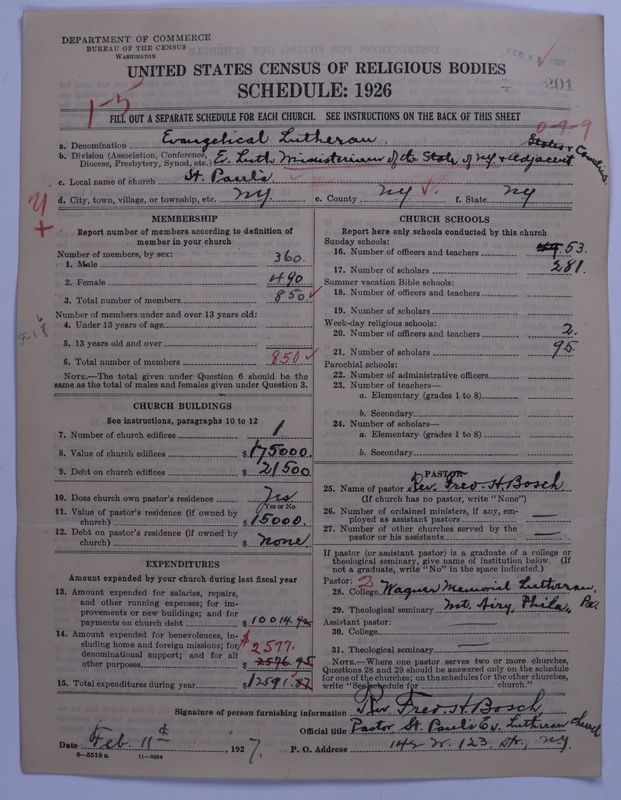 DEPARTMENT OF COMMERCE
BUREAU OF THE CENSUS
WASHINGTON
201
UNITED STATES CENSUS OF RELIGIOUS BODIES
SCHEDULE: 1926
1-5
FILL OUT A SEPARATE SCHEDULE FOR EACH CHURCH. SEE INSTRUCTIONS ON THE BACK OF THIS SHEET
0-4-9
a. Denomination Evangelical Lutheran
b. Division (Association, Conference, Diocese, Presbytery, Synod, etc.) E. Luth Ministerium of the State of NY & Adjacent States & Countries.
c. Local name of church St. Paul's
d. City, town, village, or township, etc. NY. e. County NY f. State NY
MEMBERSHIP
Report number of members according to definition of
member in your church
Number of members, by sex:
1. Male 360.
2. Female 490
3. Total number of members 850
Number of members under and over 13 years old:
4. Under 13 years of age
5. 13 years old and over
6. Total number of members 850
NOTE.—The total given under Question 6 should be the
same as the total of males and females given under Question 3.
CHURCH BUILDINGS
See instructions, paragraphs 10 to 12
7. Number of church edifices 1
8. Value of church edifices $ 175000.
9. Debt on church edifices $ 21500
10. Does church own pastor's residence Yes
Yes or No
11. Value of pastor's residence (if owned by
church) $ 15000.
12. Debt on pastor's residence (if owned by
church) $ none
EXPENDITURES
Amount expended by your church during last fiscal year
13. Amount expended for salaries, repairs,
and other running expenses; for im-
provements or new buildings; and for
payments on church debt $ 10014.92
14. Amount expended for benevolences, in-
cluding home and foreign missions; for
denominational support; and for all
other purposes $ 2576.95
$ 2577.
15. Total expenditures during year $ 12591.87
CHURCH SCHOOLS
Report here only schools conducted by this church
Sunday schools:
16. Number of officers and teachers 53.
17. Number of scholars 281.
Summer vacation Bible schools:
18. Number of officers and teachers
19. Number of scholars
Week-day religious schools:
20. Number of officers and teachers 2.
21. Number of scholars 95.
Parochial schools:
22. Number of administrative officers
23. Number of teachers—
a. Elementary (grades 1 to 8)
b. Secondary
24. Number of scholars—
a. Elementary (grades 1 to 8)
b. Secondary
PASTOR
25. Name of pastor Rev. Fred. H. Bosch
(If church has no pastor, write "None")
26. Number of ordained ministers, if any, em-
ployed as assistant pastors —
27. Number of other churches served by the
pastor or his assistants —
If pastor (or assistant pastor) is a graduate of a college or
theological seminary, give name of institution below. (If
not a graduate, write "No" in the space indicated.)
Pastor:
28. College Wagner Memorial Lutheran
29. Theological seminary Mt. Airy, Phila, Pa
Assistant pastor:
30. College —
31. Theological seminary —
NOTE.—Where one pastor serves two or more churches,
Questions 28 and 29 should be answered only on the schedule
for one of the churches; on the schedules for the other churches,
write "See schedule for church."
Signature of person furnishing information Rev. Fred. H. Bosch
Official title Pastor, St. Paul's Ev. Lutheran Church
Date Feb. 11th, 1927. P. O. Address 147 W. 123. Str., NY.
8-5518a 11-9054